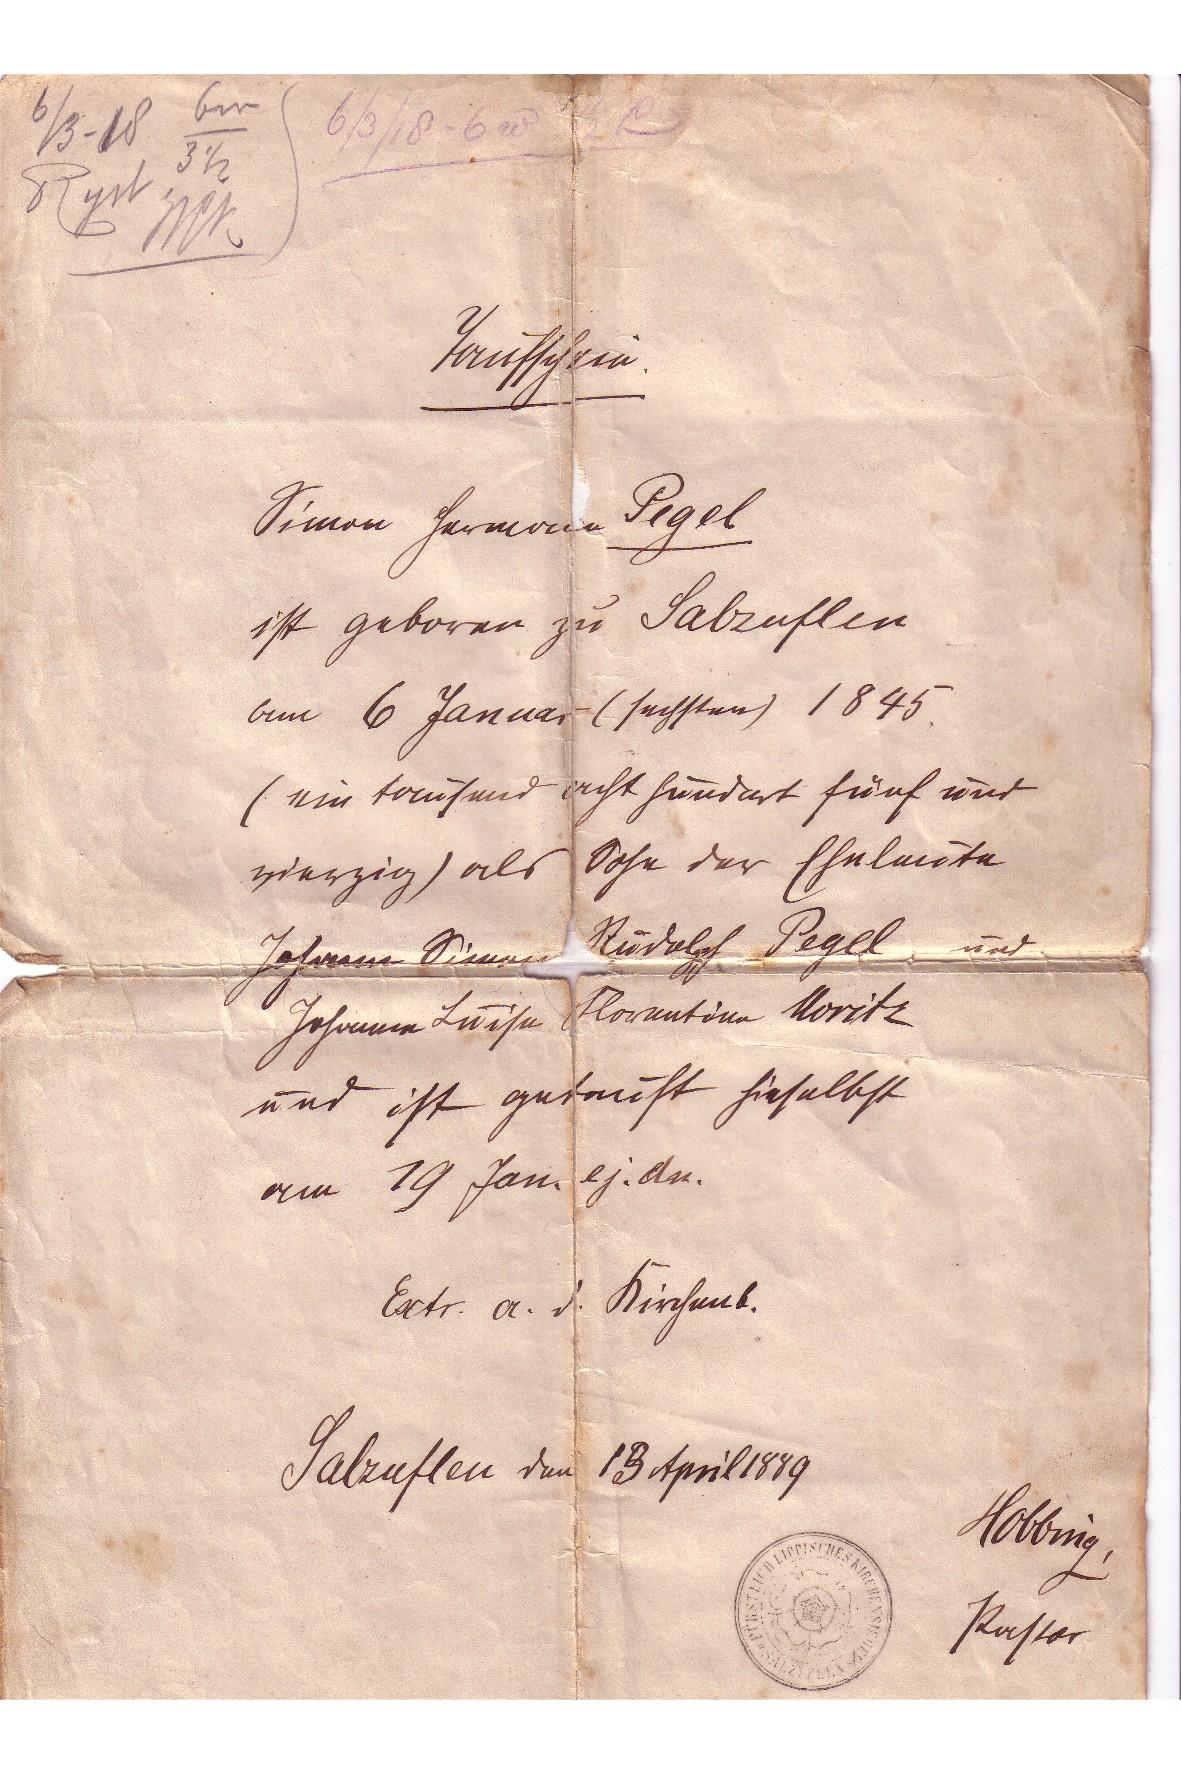 6/3-18
3 1/2
6/3/18
Taufschein.
Simon Hermann Pegel
ist geboren zu Salzuflen
am 6 Januar (sechsten) 1845
(ein tausend acht hundert fünf und
vierzig) als Sohn der Eheleute
Johann Simon Rudolph Pegel und
Johanne Luise Florentine Moritz
und ist getauft hieselbst
am 19 Jan. ej. an.
Extr. a. d. Kirchenb.
Salzuflen den 13 April 1889
Hobbing,
Pastor
FÜRSTLICH LIPPISCHES KIRCHENSIEGEL